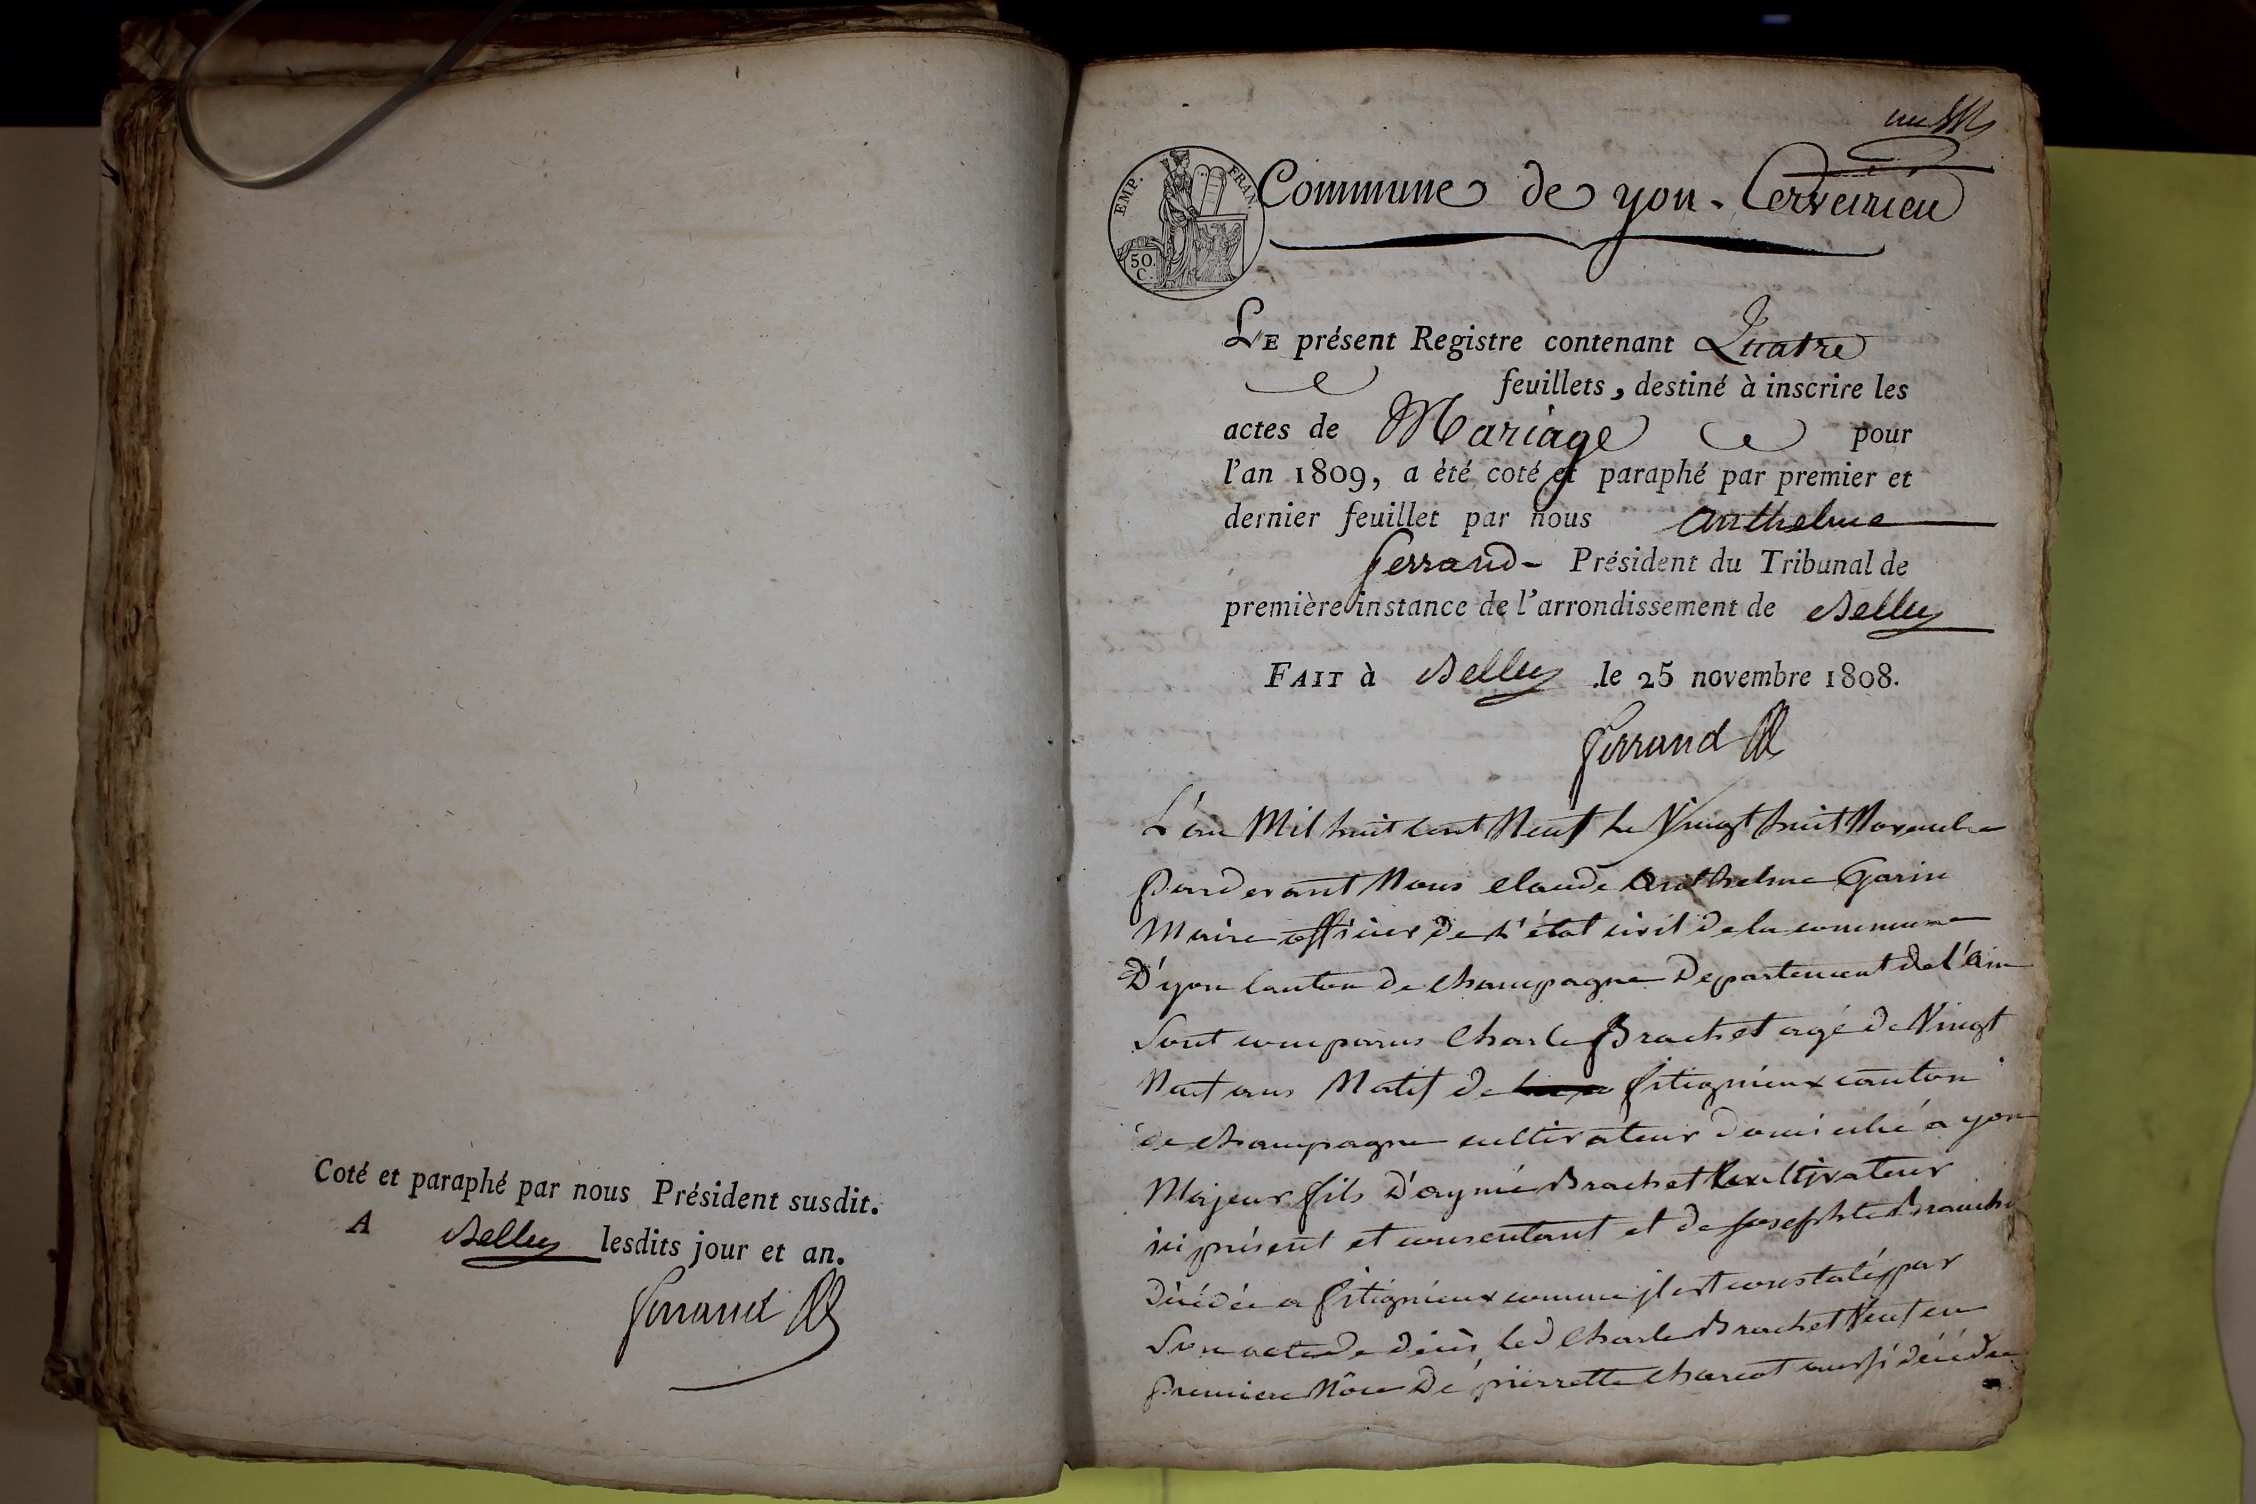 Coté et paraphé par nous Président susdit.
A Belley lesdits jour et an.
ferrand
EMP. FRAN.
50. C.
Commune de yon-Cerveirieu
LE présent Registre contenant Quatre
feuillets, destiné à inscrire les
actes de Mariage pour
l'an 1809, a été coté et paraphé par premier et
dernier feuillet par nous anthelme
ferrand - Président du Tribunal de
première instance de l'arrondissement de Belley
FAIT à Belley le 25 novembre 1808.
ferrand
L'an Mil huit cent Neuf le Vingt huit Novembre
Pardevant Nous Claude Anthelme Garin
Maire officier de l'état civil de la commune
D'yon Canton de Champagne Departement de l'ain
Sont comparus Charle Brachet agé de Vingt
Neuf ans Natif de fitignieux canton
de Champagne cultivateur domicilié a yon
Majeur fils D'aymé Brachet Cultivateur
ici présent et consentant et de Josephte
Décédée a fitignieux comme il est constaté par
Son acte de décès, led Charle Brachet Veuf en
premiere Nôce De pierrette Charcot aussi décédée